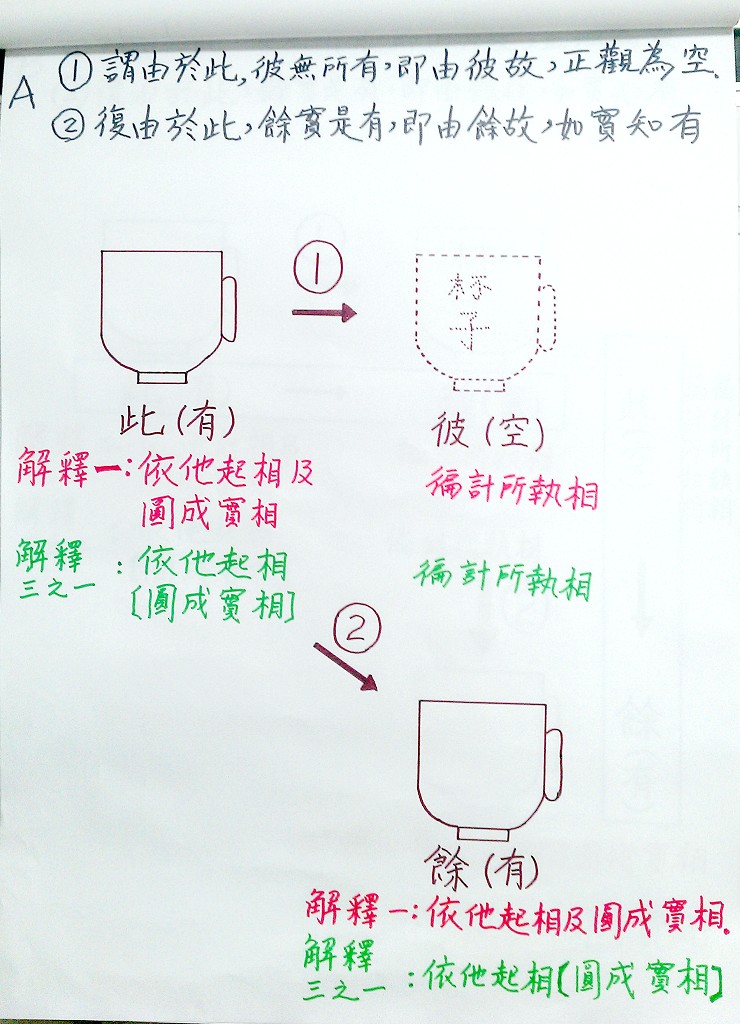 A ① 謂由於此,彼無所有,即由彼故,正觀為空、
② 復由於此,餘實是有,即由餘故,如實知有
①
杯
子
此(有)
彼(空)
解釋一:依他起相及
圓成實相
徧計所執相
解釋
三之一
:依他起相
[圓成實相]
徧計所執相
②
餘(有)
解釋一:依他起相及圓成實相.
解釋
三之一
:依他起相[圓成實相]